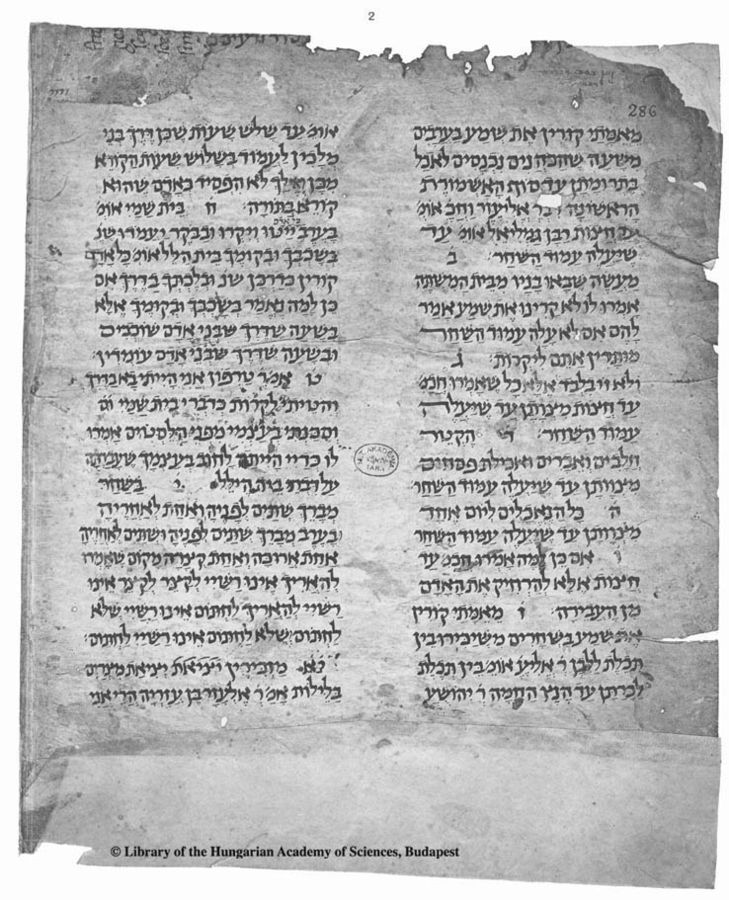 2
286
מאמתי קורין את שמע בערבים
משעה שהכהנים נכנסים לאכל
בתרומתן עד סוף האשמורת
הראשונה דבר אליעזר וחכ אומ
עד חצות רבן גמליאל אומ עד
שיעלה עמוד השחר ב
מעשה שבאו בניו מבית המשתה
אמרו לו לא קרינו את שמע אמר
להם אם לא עלה עמוד השחר
מותרין אתם ליקרות ג
ולא זו בלבד אלא כל שאמרו חכמ
עד חצות מצותן עד שיעלה
עמוד השחר ד הקטר
חלבים ואברים ואכילת פסחים
מצוותן עד שיעלה עמוד השחר
ה כל הנאכלים ליום אחד
מצוותן עד שיעלה עמוד השחר
אם כן למה אמרו חכמ עד
חצות אלא להרחיק את האדם
מן העבירה ו מאמתי קורין
את שמע בשחרים משיכירו בין
תכלת ללבן ר אליע אומ בין תכלת
לכרתן עד הנץ החמה ר יהושע
אומ עד שלש שעות שכן דרך בני
מלכין לעמוד בשלוש שעות הקורא
מכן ואילך לא הפסיד כאדם שהוא
קורא בתורה ח בית שמי אומ
בערב ייטו ויקרו ובבקר ויעמדו שנ
בשכבך ובקומך בית הלל אומ כל אדם
קורין כדרכן שנ ובלכתך בדרך אם
כן למה נאמר בשכבך ובקומך אלא
בשעה שדרך שבני אדם שוכבים
ובשעה שדרך שבני אדם עומדין
ט אמ ר טרפון אני הייתי בא בדרך
והטיתי לקרות כדברי בית שמי
וסכנתי בעצמי מפני הלסטים אמרו
לו כדיי הייתה לחוב בעצמך שעברתה
על דברי בית הילל י בשחר
מברך שתים לפניה ואחת לאחריה
ובערב מברך שתים לפניה ושתים לאחריה
אחת ארוכה ואחת קצרה מקום שאמרו
להאריך אינו רשיי לקצר לקצר אינו
רשיי להאריך לחתום אינו רשיי שלא
לחתום שלא לחתום אינו רשיי לחתום
יא מזכירין יציאת מצרים
בלילות אמ ר אלעזר בן עזריה הרי אני
M. T. AKADÉMIA
© Library of the Hungarian Academy of Sciences, Budapest